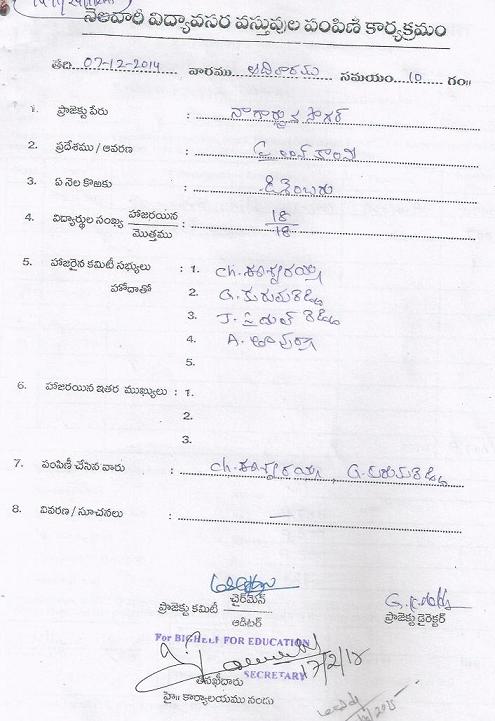 నెలవారీ విద్యావసర వస్తువుల పంపిణి కార్యక్రమం
తేది 07-12-2014 వారము ఆదివారము సమయం 10 గం॥
1. ప్రాజెక్టు పేరు : నాగార్జున సాగర్
2. ప్రదేశము / ఆవరణ : హిల్ కాలనీ
3. ఏ నెల కొఱకు : డిశెంబరు
4. విద్యార్థుల సంఖ్య హాజరయిన / మొత్తము : 18 / 18
5. హాజరైన కమిటీ సభ్యులు : 1. ch. ఈశ్వరయ్య
హోదాతో 2. G. కురుమరెడ్డి
3. J. రెడ్డి
4. A.
5.
6. హాజరయిన ఇతర ముఖ్యులు : 1.
2.
3.
7. పంపిణీ చేసిన వారు : ch. ఈశ్వరయ్య, G. కురుమరెడ్డి
8. వివరణ / సూచనలు : —
ప్రాజెక్టు కమిటీ చైర్‌మేన్
ఆడిటర్
ప్రాజెక్టు డైరెక్టర్
For BIGHELP FOR EDUCATION
17/2/15
SECRETARY
తనిఖీదారు
హై॥ కార్యాలయము నందు